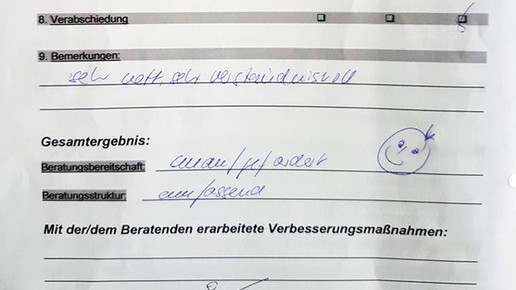 8. Verabschiedung
9. Bemerkungen:
sehr nett, sehr verständnisvoll
Gesamtergebnis:
Beratungsbereitschaft: unaufgefordert
Beratungsstruktur: umfassend
Mit der/dem Beratenden erarbeitete Verbesserungsmaßnahmen: